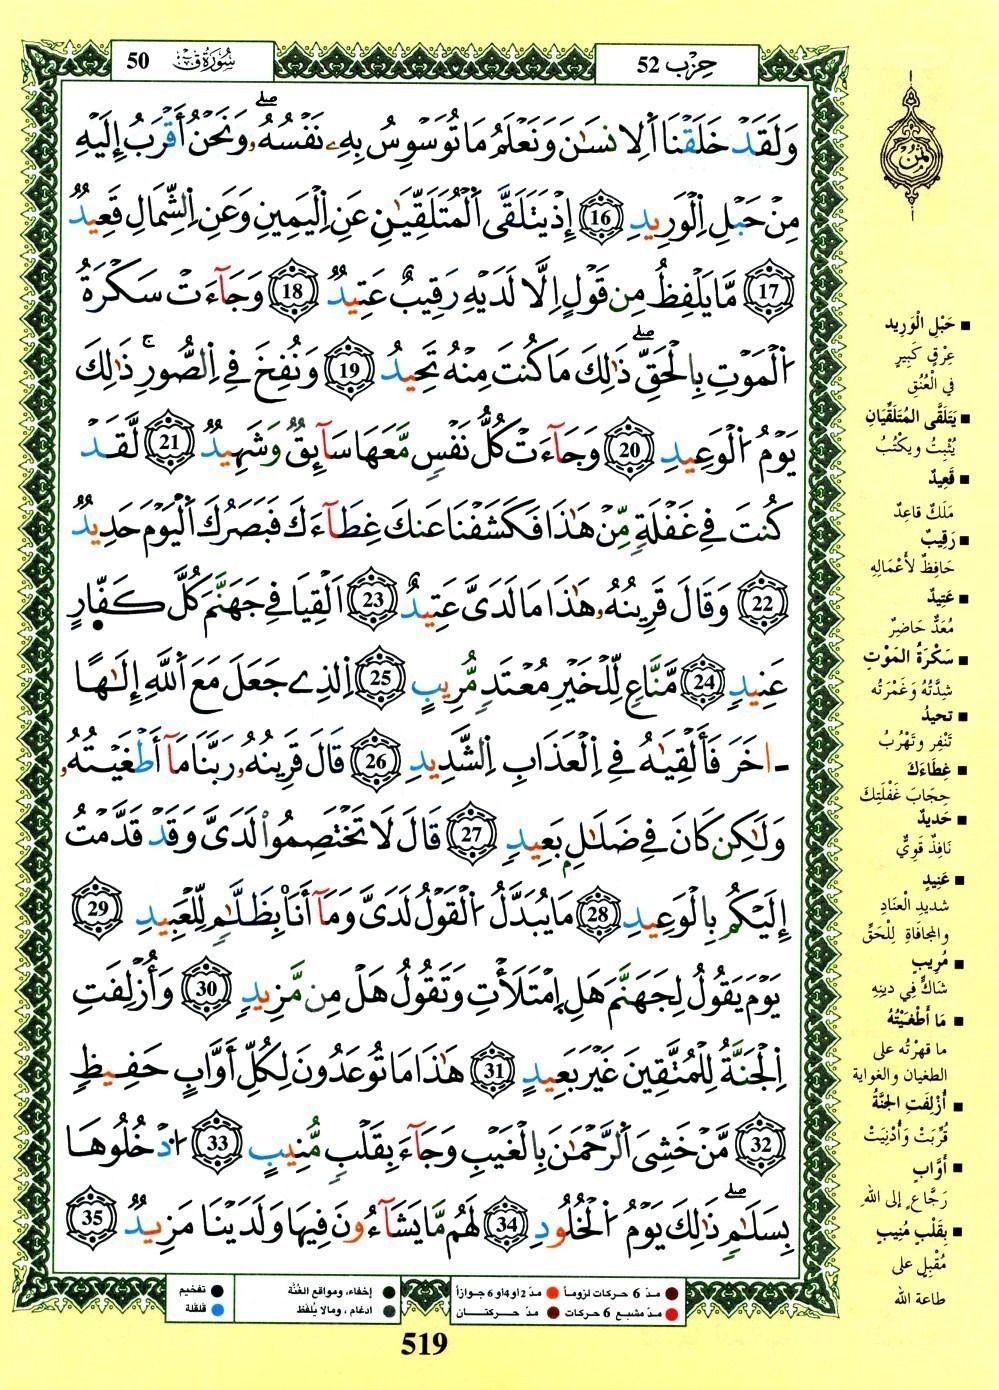 حِزْب 52
سُورَةُ ق 50
وَلَقَدْ خَلَقْنَا اَ۬لِانسَٰنَ وَنَعْلَمُ مَا تُوَسْوِسُ بِهِۦ نَفْسُهُۥ ۖ وَنَحْنُ أَقْرَبُ إِلَيْهِ
مِنْ حَبْلِ اِ۬لْوَرِيدِ 16 إِذْ يَتَلَقَّى اَ۬لْمُتَلَقِّيَٰنِ عَنِ اِ۬لْيَمِينِ وَعَنِ اِ۬لشِّمَالِ قَعِيدٌ
17 مَّا يَلْفِظُ مِن قَوْلٍ اِلَّا لَدَيْهِ رَقِيبٌ عَتِيدٌ 18 وَجَآءَتْ سَكْرَةُ
اُ۬لْمَوْتِ بِالْحَقِّ ۖ ذَٰلِكَ مَا كُنتَ مِنْهُ تَحِيدُ 19 وَنُفِخَ فِي اِ۬لصُّورِ ۚ ذَٰلِكَ
يَوْمُ اُ۬لْوَعِيدِ 20 وَجَآءَتْ كُلُّ نَفْسٍ مَّعَهَا سَآئِقٌ وَشَهِيدٌ 21 لَّقَدْ
كُنتَ فِي غَفْلَةٍ مِّنْ هَٰذَا فَكَشَفْنَا عَنكَ غِطَآءَكَ فَبَصَرُكَ اَ۬لْيَوْمَ حَدِيدٌ
22 وَقَالَ قَرِينُهُۥ هَٰذَا مَا لَدَىَّ عَتِيدٌ 23 اَلْقِيَا فِي جَهَنَّمَ كُلَّ كَفّ۪ارٍ
عَنِيدٍ 24 مَّنَّاعٍ لِّلْخَيْرِ مُعْتَدٍ مُّرِيبٍ 25 اِ۬لذِے جَعَلَ مَعَ اَ۬للَّهِ إِلَٰهًا
ـاخَرَ فَأَلْقِيَٰهُ فِي اِ۬لْعَذَابِ اِ۬لشَّدِيدِ 26 قَالَ قَرِينُهُۥ رَبَّنَا مَآ أَطْغَيْتُهُۥ
وَلَٰكِن كَانَ فِي ضَلَٰلٍ بَعِيدٍ 27 قَالَ لَا تَخْتَصِمُواْ لَدَىَّ وَقَدْ قَدَّمْتُ
إِلَيْكُم بِالْوَعِيدِ 28 مَا يُبَدَّلُ اُ۬لْقَوْلُ لَدَىَّ وَمَآ أَنَا۠ بِظَلَّٰمٍ لِّلْعَبِيدِ 29
يَوْمَ يَقُولُ لِجَهَنَّمَ هَلِ اِ۪مْتَلَأْتِ وَتَقُولُ هَلْ مِن مَّزِيدٍ 30 وَأُزْلِفَتِ
اِ۬لْجَنَّةُ لِلْمُتَّقِينَ غَيْرَ بَعِيدٍ 31 هَٰذَا مَا تُوعَدُونَ لِكُلِّ أَوَّابٍ حَفِيظٍ
32 مَّنْ خَشِيَ اَ۬لرَّحْمَٰنَ بِالْغَيْبِ وَجَآءَ بِقَلْبٍ مُّنِيبٍ 33 اُ۟دْخُلُوهَا
بِسَلَٰمٍ ۖ ذَٰلِكَ يَوْمُ اُ۬لْخُلُودِ 34 لَهُم مَّا يَشَآءُونَ فِيهَا وَلَدَيْنَا مَزِيدٌ 35
■ حَبْلِ الْوَرِيد
عِرْقٍ كَبِيرٍ
في الْعُنُقِ
■ يَتَلَقَّى المُتَلَقِّيَانِ
يُثْبِتُ ويكْتُبُ
■ قَعِيدٌ
مَلَكٌ قاعِدٌ
■ رَقِيبٌ
حَافِظٌ لأَعْمَالِهِ
■ عَتِيدٌ
مُعَدٌّ حَاضِرٌ
■ سَكْرَةُ المَوْتِ
شِدَّتُهُ وَغَمْرَتُه
■ تحيدُ
تَنْفِر وتَهْرُبُ
■ غِطَاءَكَ
حِجَابَ غَفْلَتِكَ
■ حَديدٌ
نَافِذٌ قَوِيٌّ
■ عَنِيدٍ
شديدِ الْعنَادِ
والمجافاةِ لِلْحَقِّ
■ مُرِيبٍ
شاكٍّ فِي دينِهِ
■ مَا أَطْغَيْتُهُ
ما قهرْتُه على
الطغيان والغواية
■ أُزْلِفَتِ الجَنَّةُ
قُرِّبَتْ وَأُدْنِيَتْ
■ أَوَّابٍ
رَجَّاعٍ إلى اللهِ
■ بِقَلْبٍ مُنِيبٍ
مُقْبِلٍ على
طاعة الله
مدّ 6 حركات لزوماً
مدّ 2 أو 4 أو 6 جوازاً
مدّ مشبع 6 حركات
مدّ حركتـــان
إخفاء، ومواقع الغُنَّة
ادغام، ومالا يُلفَظ
تفخيم
قلقلة
519